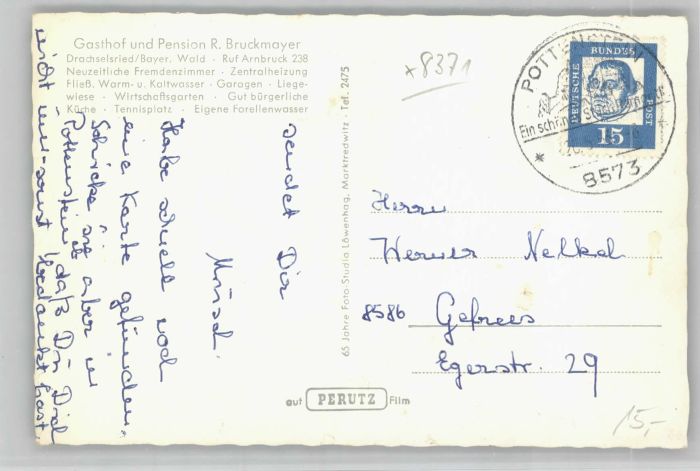 Gasthof und Pension R. Bruckmayer
Drachselsried/Bayer. Wald · Ruf Arnbruck 238
Neuzeitliche Fremdenzimmer · Zentralheizung
Fließ. Warm- u. Kaltwasser · Garagen · Liege-
wiese · Wirtschaftsgarten · Gut bürgerliche
Küche · Tennisplatz · Eigene Forellenwasser
*8371
POTTENSTEIN
Ein schönes
8573
DEUTSCHE
BUNDES
POST
15
65 Jahre Foto-Studio Löwenhag, Marktredwitz · Tel. 2475
sendet Dir
Habe schnell noch
eine Karte gefunden.
Schicke sie aber in
Pottenstein, daß Du Dich
nicht um-sonst bedankt hast.
Herrn
Werner Nelkel
8586 Gefrees
Egerstr. 29
auf PERUTZ Film
15,-